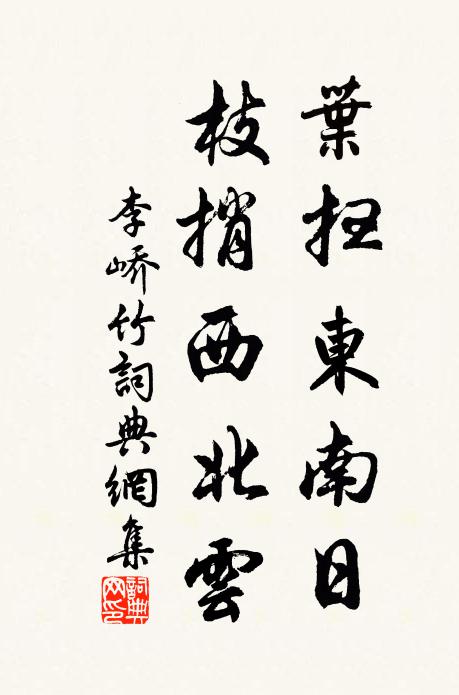 葉扫東南日
枝捎西北雲
李嶠竹詞典網集
詞典网印